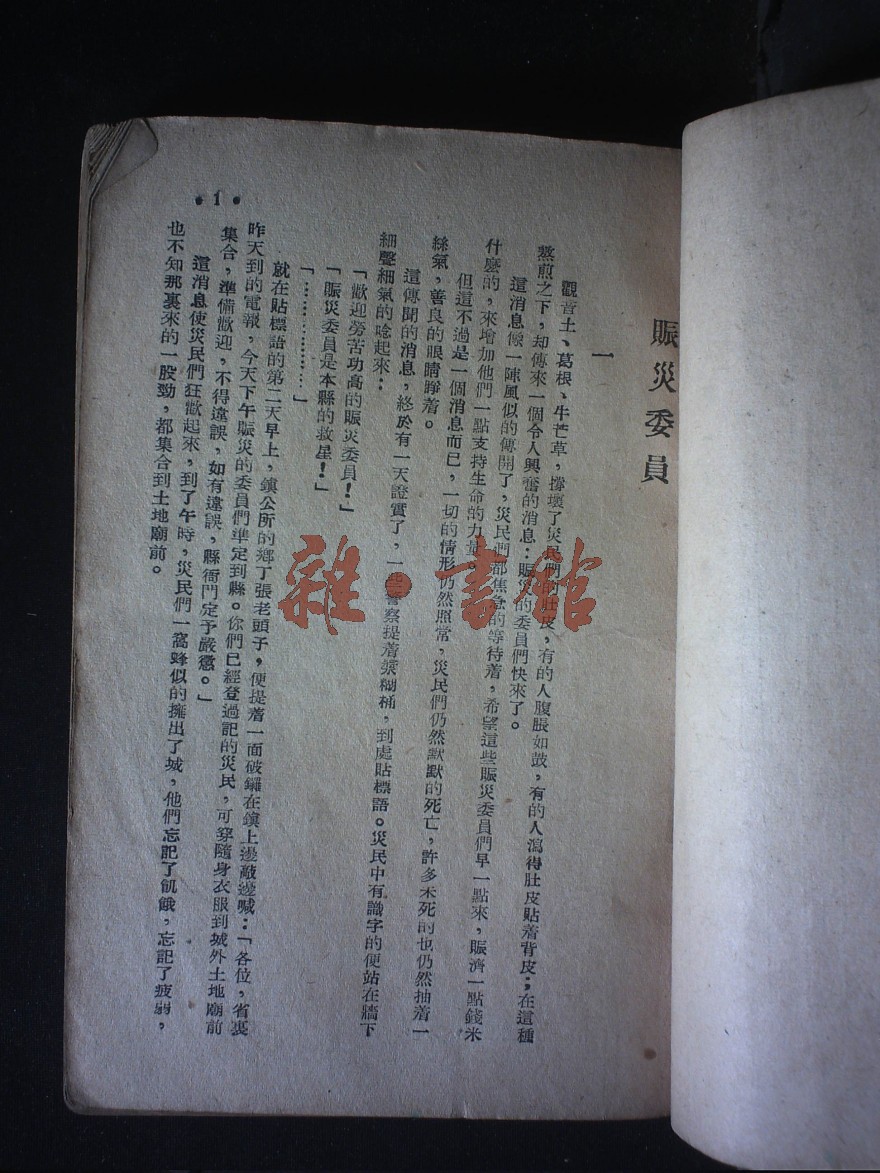 賑災委員
一
觀音土、葛根、牛芒草，撐壞了災民們的肚皮，有的人腹脹如鼓，有的人瀉得肚皮貼着背皮；在這種
熬煎之下，却傳來一個令人興奮的消息：賑災的委員們快來了。
這消息像一陣風似的傳開了，災民們都焦急的等待着，希望這些賑災委員們早一點來，賑濟一點錢米
什麼的，來增加他們一點支持生命的力量。
但這不過是一個消息而已，一切的情形仍然照常，災民們仍然默默的死亡，許多未死的也仍然抽着一
絲氣，善良的眼睛睜着。
這傳聞的消息，終於有一天證實了，一些警察提着漿糊桶，到處貼標語。災民中有識字的便站在牆下
細聲細氣的唸起來：
「歡迎勞苦功高的賑災委員！」
「賑災委員是本縣的救星！」
「………………」
就在貼標語的第二天早上，鎮公所的鄉丁張老頭子，便提着一面破鑼在鎮上邊敲邊喊：「各位，省裏
昨天到的電報，今天下午賑災的委員們準定到縣。你們已經登過記的災民，可穿隨身衣服到城外土地廟前
集合，準備歡迎，不得違誤，如有違誤，縣衙門定予嚴懲。」
這消息使災民們狂歡起來，到了午時，災民們一窩蜂似的擁出了城，他們忘記了飢餓，忘記了疲弱，
也不知那裏來的一股勁，都集合到土地廟前。
•1•
雜·書館